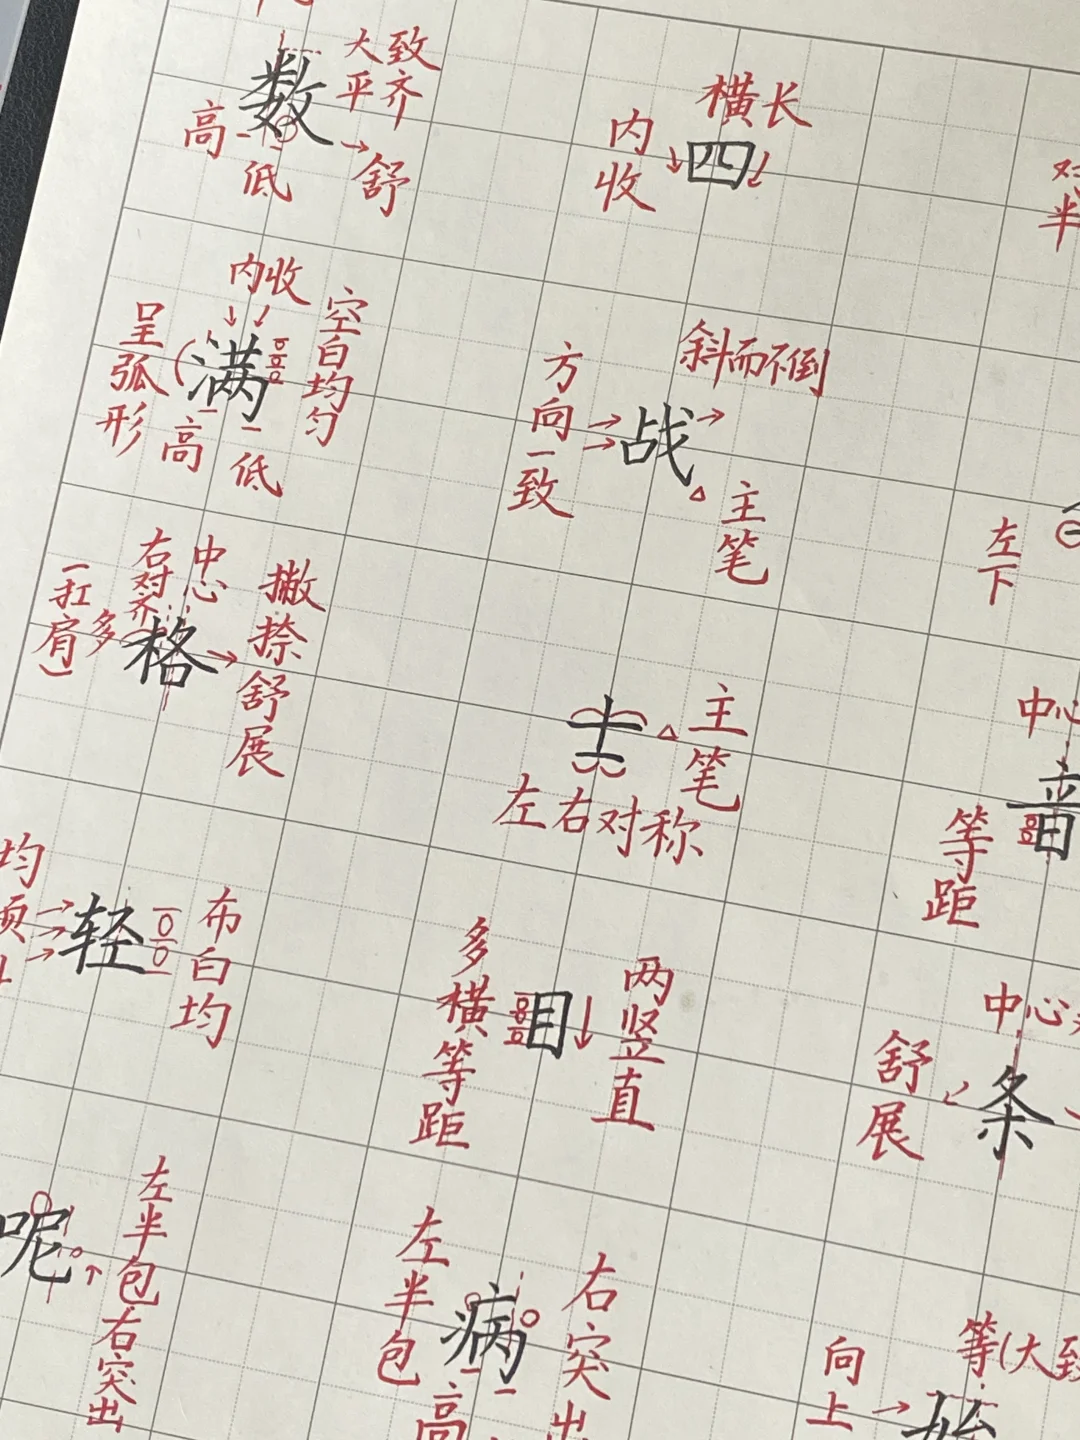 大致
平齐
数
高
低
舒
横长
内收
四
对
半
内收
呈弧形
满
空白均匀
高
低
斜而不倒
方向一致
战
主笔
左下
右对齐
中心
(扛肩)
多
格
撇捺舒展
士
主笔
左右对称
中心
音
等距
均
轻
布白均
多横等距
目
两竖直
中心
舒展
条
呢
左半包右突出
左半包
病
右突出
高
等(大致
向上
始